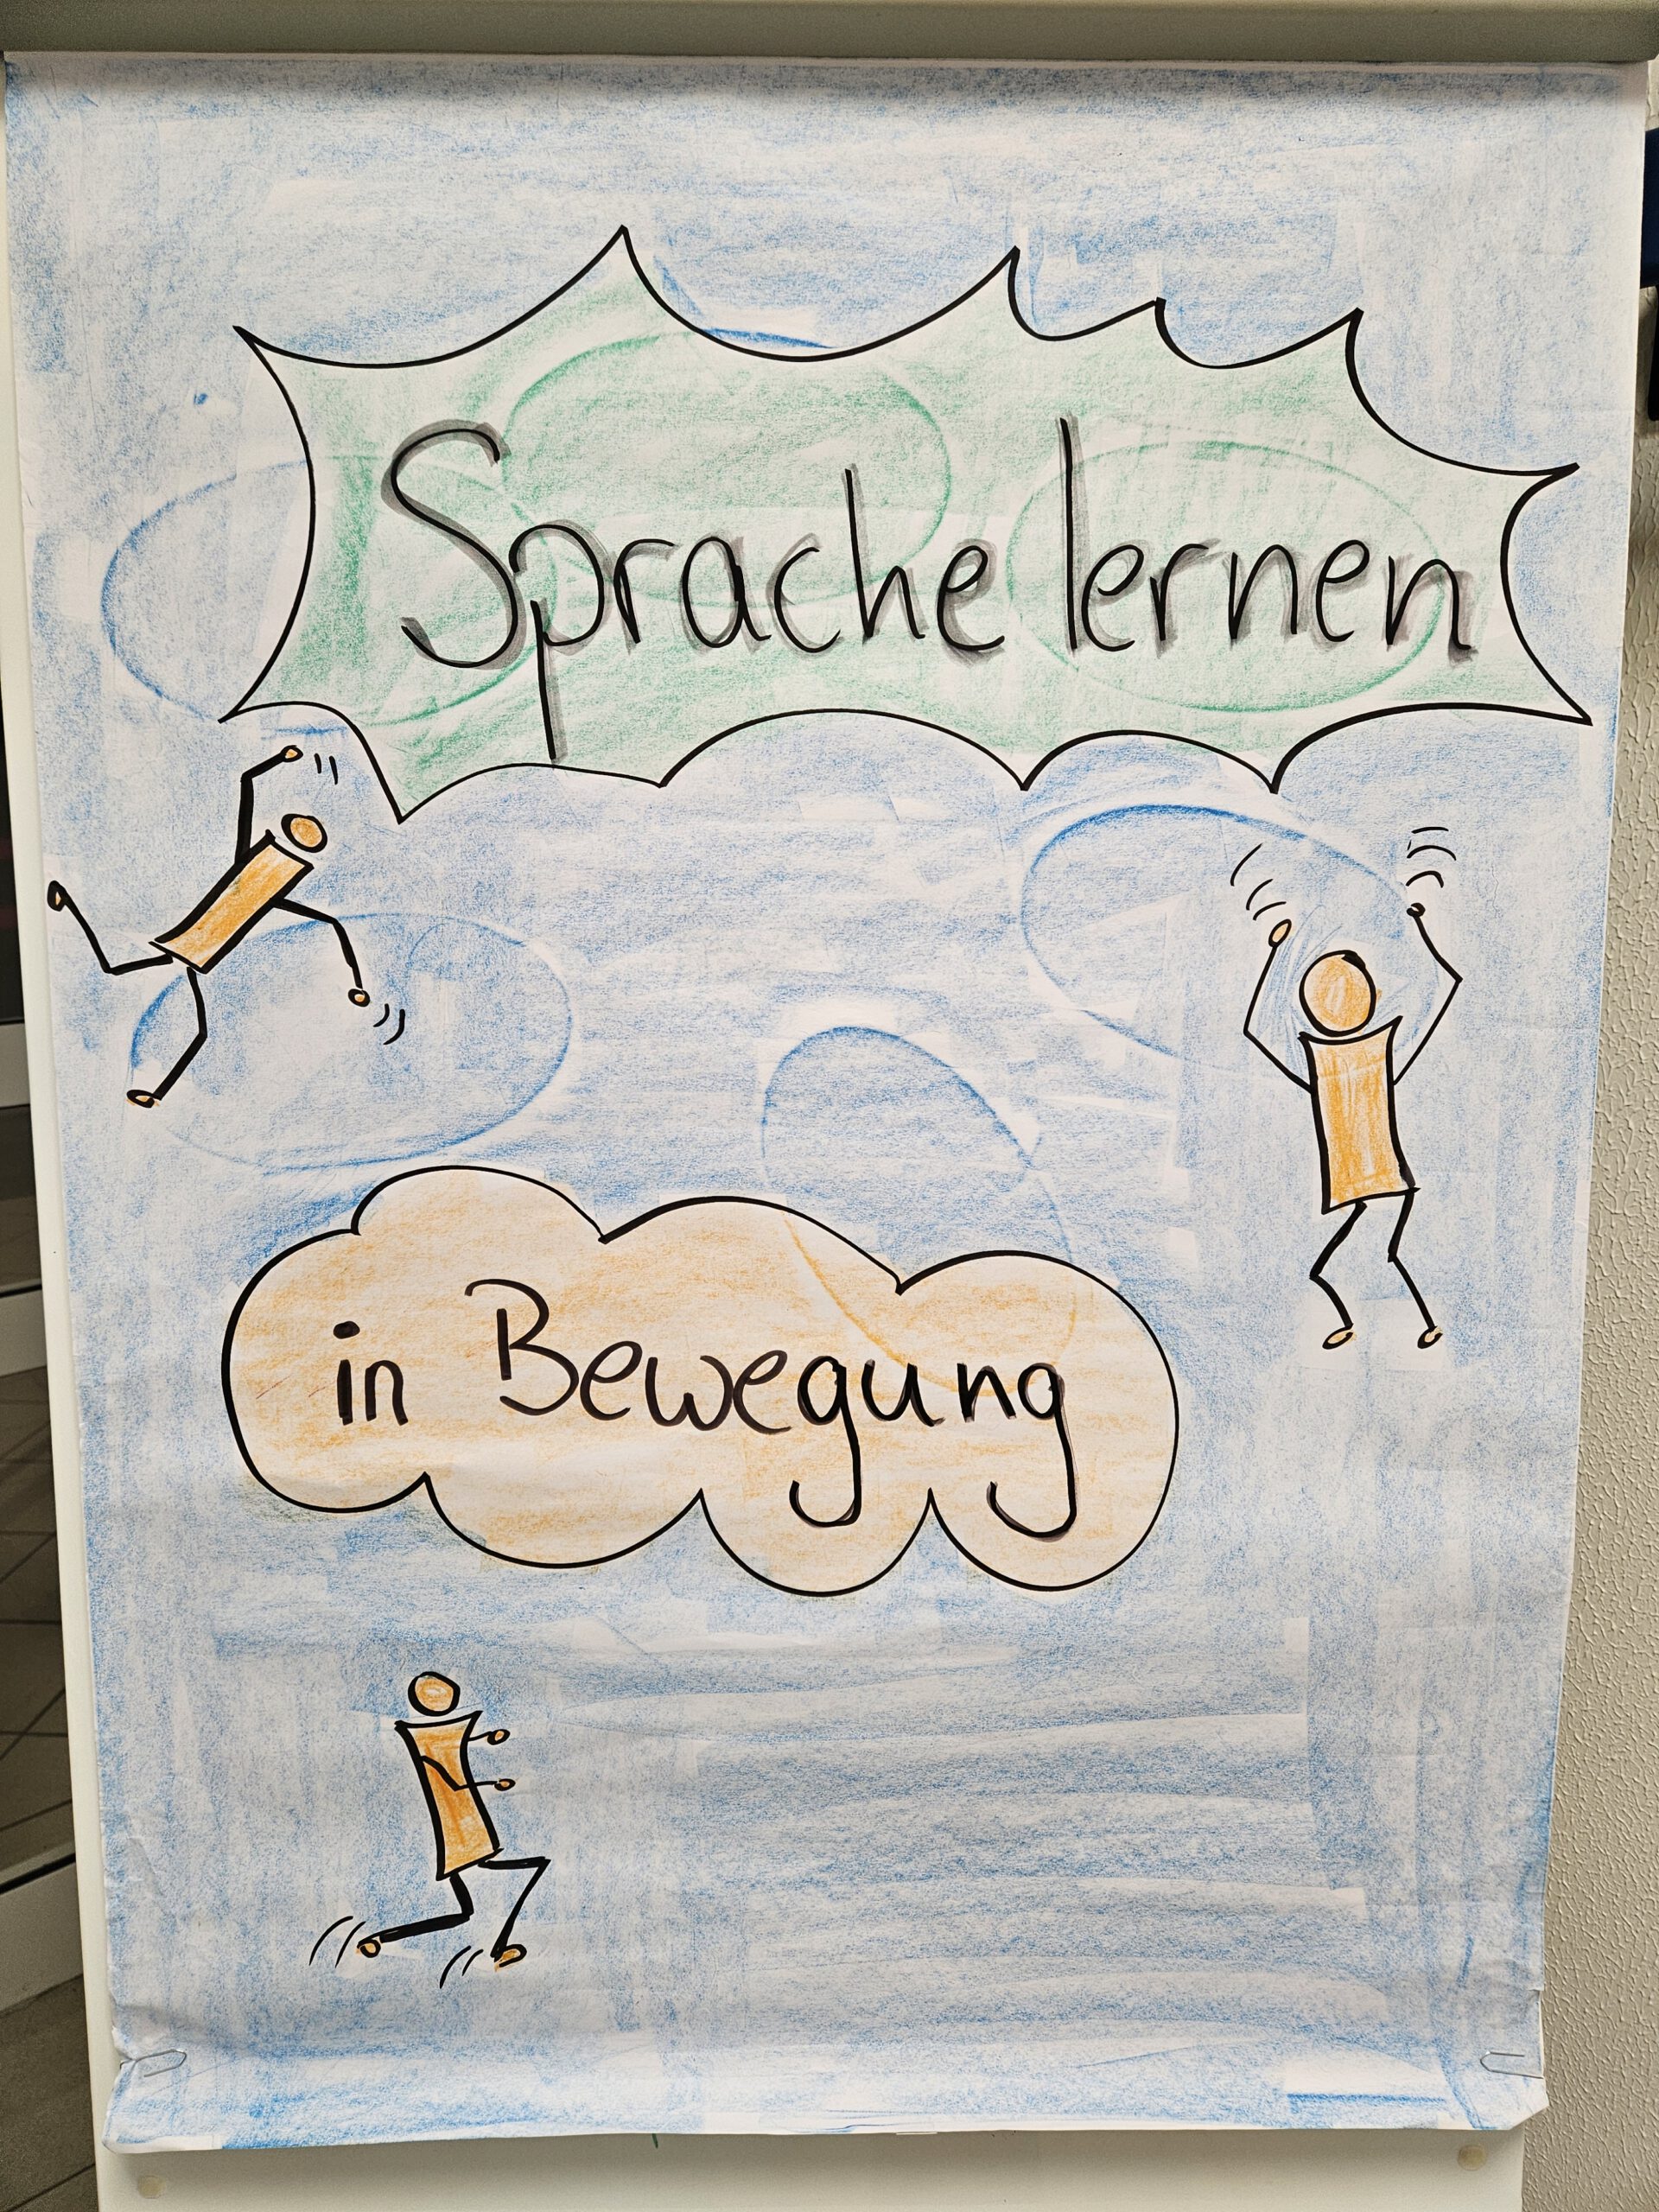 Sprache lernen
in Bewegung